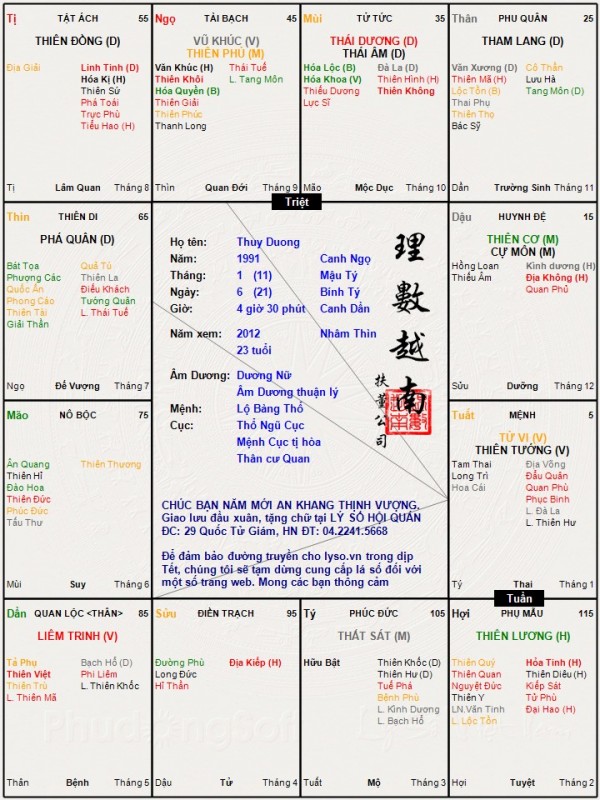 Tị TẬT ÁCH 55
THIÊN ĐỒNG (D)
Địa Giải
Linh Tinh (D)
Hóa Kị (H)
Thiên Sứ
Phá Toái
Trực Phù
Tiểu Hao (H)
Tị Lâm Quan Tháng 8
Ngọ TÀI BẠCH 45
VŨ KHÚC (V)
THIÊN PHỦ (M)
Văn Khúc (H)
Thiên Khôi
Hóa Quyền (B)
Thiên Giải
Thiên Phúc
Thanh Long
Thái Tuế
L. Tang Môn
Thìn Quan Đới Tháng 9
Mùi TỬ TỨC 35
THÁI DƯƠNG (D)
THÁI ÂM (D)
Hóa Lộc (B)
Hóa Khoa (V)
Thiếu Dương
Lực Sĩ
Đà La (D)
Thiên Hình (H)
Thiên Không
Mão Mộc Dục Tháng 10
Thân PHU QUÂN 25
THAM LANG (D)
Văn Xương (D)
Thiên Mã (H)
Lộc Tồn (B)
Thai Phụ
Thiên Thọ
Bác Sỹ
Cô Thần
Lưu Hà
Tang Môn (D)
Dần Trường Sinh Tháng 11
Triệt
Thìn THIÊN DI 65
PHÁ QUÂN (D)
Bát Tọa
Phượng Các
Quốc Ấn
Phong Cáo
Thiên Tài
Giải Thần
Quả Tú
Thiên La
Điếu Khách
Tướng Quân
L. Thái Tuế
Ngọ Đế Vượng Tháng 7
Họ tên: Thuy Duong
Năm: 1991 Canh Ngọ
Tháng: 1 (11) Mậu Tý
Ngày: 6 (21) Bính Tý
Giờ: 4 giờ 30 phút Canh Dần
Năm xem: 2012 Nhâm Thìn
23 tuổi
Âm Dương: Dương Nữ
Âm Dương thuận lý
Mệnh: Lộ Bàng Thổ
Cục: Thổ Ngũ Cục
Mệnh Cục tị hòa
Thân cư Quan
理數越南
扶董公司
CHÚC BẠN NĂM MỚI AN KHANG THỊNH VƯỢNG.
Giao lưu đầu xuân, tặng chữ tại LÝ SỐ HỘI QUÁN
ĐC: 29 Quốc Tử Giám, HN ĐT: 04.2241.5668
Để đảm bảo đường truyền cho lyso.vn trong dịp
Tết, chúng tôi sẽ tạm dừng cung cấp lá số đối với
một số trang web. Mong các bạn thông cảm
Dậu HUYNH ĐỆ 15
THIÊN CƠ (M)
CỰ MÔN (M)
Hồng Loan
Thiếu Âm
Kình dương (H)
Địa Không (H)
Quan Phủ
Sửu Dưỡng Tháng 12
Mão NÔ BỘC 75
Ân Quang
Thiên Hỉ
Đào Hoa
Thiên Đức
Phúc Đức
Tấu Thư
Thiên Thương
Mùi Suy Tháng 6
Tuất MỆNH 5
TỬ VI (V)
THIÊN TƯỚNG (V)
Tam Thai
Long Trì
Hoa Cái
Địa Võng
Đẩu Quân
Quan Phù
Phục Binh
L. Đà La
L. Thiên Hư
Tý Thai Tháng 1
Tuần
Dần QUAN LỘC <THÂN> 85
LIÊM TRINH (V)
Tả Phụ
Thiên Việt
Thiên Trù
L. Thiên Mã
Bạch Hổ (D)
Phi Liêm
L. Thiên Khốc
Thân Bệnh Tháng 5
Sửu ĐIỀN TRẠCH 95
Đường Phù
Long Đức
Hỉ Thần
Địa Kiếp (H)
Dậu Tử Tháng 4
Tý PHÚC ĐỨC 105
THẤT SÁT (M)
Hữu Bật
Thiên Khốc (D)
Thiên Hư (D)
Tuế Phá
Bệnh Phù
L. Kình Dương
L. Bạch Hổ
Tuất Mộ Tháng 3
Hợi PHỤ MẪU 115
THIÊN LƯƠNG (H)
Thiên Quý
Thiên Quan
Nguyệt Đức
Thiên Y
LN.Văn Tinh
L. Lộc Tồn
Hỏa Tinh (H)
Thiên Diêu (H)
Kiếp Sát
Tử Phù
Đại Hao (H)
Hợi Tuyệt Tháng 2